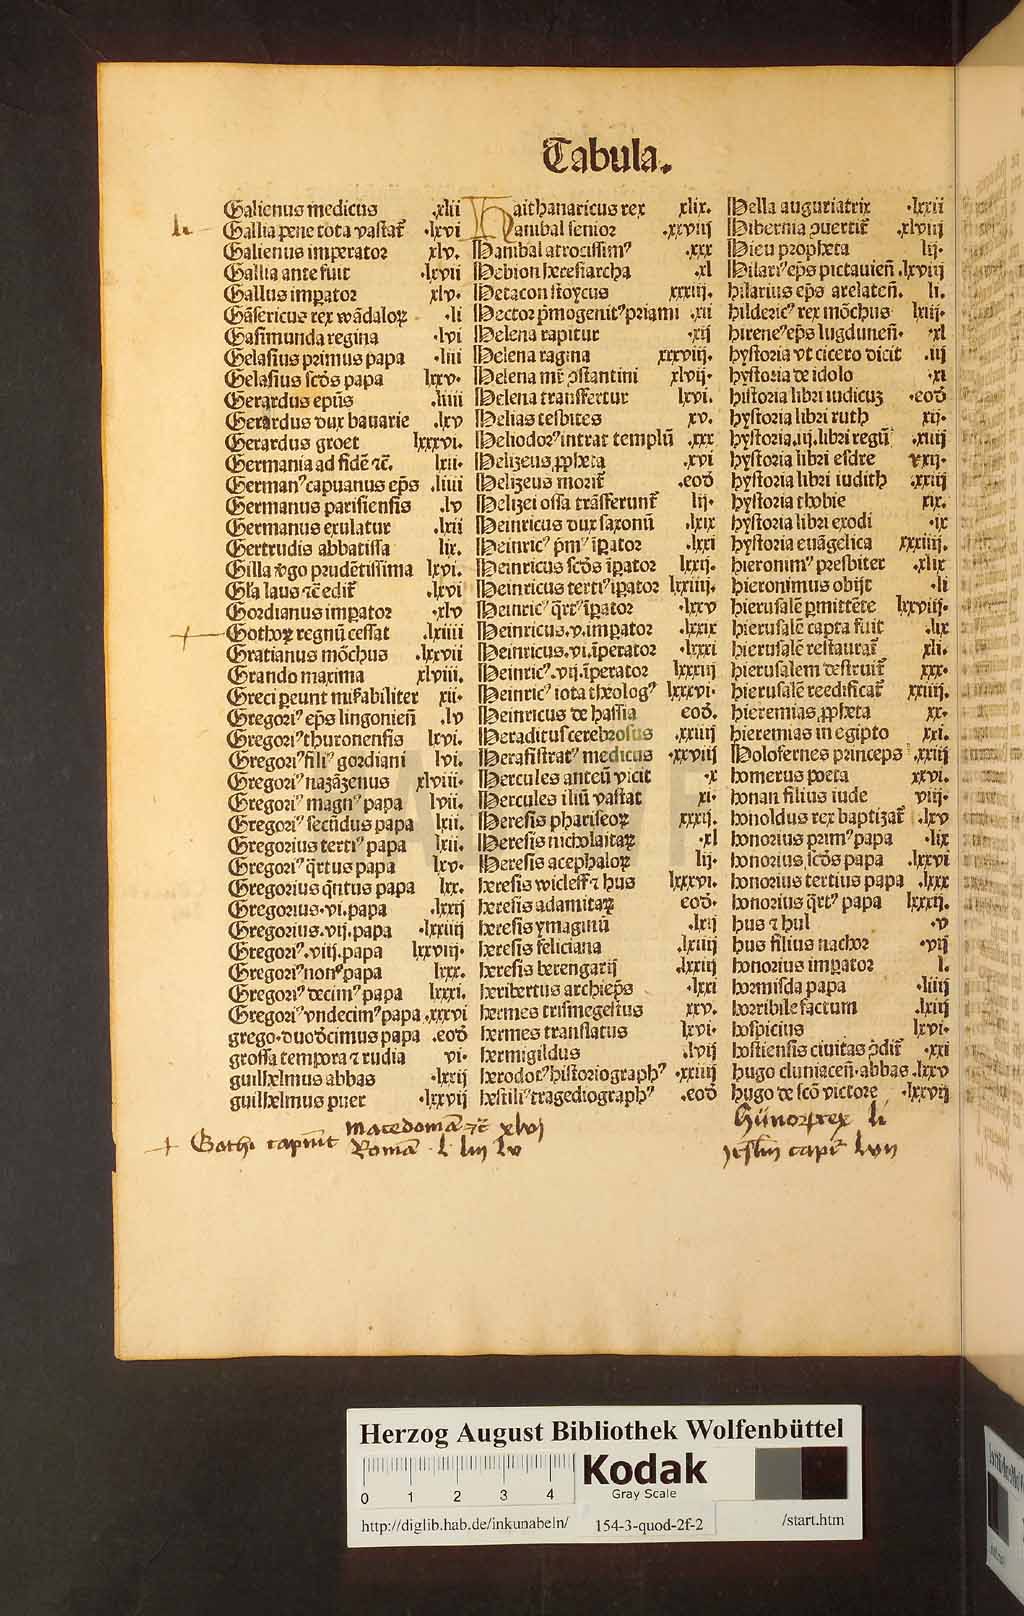 Tabula.
Galienus medicus .xlii
li. Gallia pene tota vastat᷑ .lxvi
Galienus imperator xlv.
Gallia ante fuit .lxvii
Gallus imꝑator xlv.
Gāsericus rex wādaloꝝ .li
Gasimunda regina .lvi
Gelasius primus papa .liii
Gelasius scd̄s papa lxxv.
Gerardus epūs .liiii
Gerardus dux bauarie .lxv
Gerardus groet lxxxvi.
Germania ad fidē ⁊c̄. lxii.
Germanꝰ capuanus ep̄s .liiii
Germanus parisiensis .lv
Germanus exulatur .lxii
Gertrudis abbatissa lix.
Gilla v̄go prudētissima lxvi.
Gl̄a laus ⁊c̄ edit᷑ .lxvi
Gordianus imꝑator .xlv
Gothoꝝ regnū cessat .lxiiii
Gratianus mōchus .lxxvii
Grando maxima xlviii.
Greci ꝑeunt mirabiliter xii.
Gregoriꝰ ep̄s lingonieñ .lv
Gregoriꝰ thuronensis lxvi.
Gregoriꝰ filiꝰ gordiani lvi.
Gregoriꝰ nazāzenus xlviii.
Gregoriꝰ magnꝰ papa lvii.
Gregoriꝰ secūdus papa lxii.
Gregorius tertiꝰ papa lxii.
Gregoriꝰ q̄rtus papa lxv.
Gregorius q̄ntus papa lxx.
Gregorius.vi.papa .lxxij
Gregorius.vij.papa .lxxiiij
Gregoriꝰ.viij.papa lxxviij.
Gregoriꝰ nonꝰ papa lxxx.
Gregoriꝰ decimꝰ papa lxxxi.
Gregoriꝰ vndecimꝰ papa .xxxvi
grego.duod̄cimus papa .eod̄
grossa tempora ⁊ rudia vi.
guilhelmus abbas .lxxij
guilhelmus puer .lxxvij
Haithanaricus rex xlix.
Hanibal senior .xxviij
Hanibal atrocissimꝰ .xxx
Hebion heresiarcha .xl
Hetacon stoycus xxxiij.
Hector p̄mogenitꝰ priami .xii
Helena rapitur .xij
Helena ragina xxxviij.
Helena mr̄ ꝯstantini xlvij.
Helena transfertur lxvi.
Helias tesbites xv.
Heliodorꝰ intrat templū .xxx
Helizeus ꝓpheta .xvi
Helizeus morit᷑ .eod̄
Helizei ossa trāsferunt᷑ lij.
Heinricus dux saxonū .lxix
Heinricꝰ p̄mꝰ īꝑator .lxxi
Heinricus scd̄s īꝑator lxxij.
Heinricus tertiꝰ īꝑator lxxiiij.
Heinricꝰ q̄rtꝰ īꝑator .lxxv
Heinricus.v.imꝑator .lxxix
Heinricus.vi.īperator .lxxxi
Heinricꝰ.vij.īperator lxxxiij
Heinricꝰ iota theologꝰ lxxxvi.
Heinricus de hassia eod̄.
Heraditus cerebrosus .xxiiij
Herasistratꝰ medicus .xxviij
Hercules anteū vicit .x
Hercules iliū vastat xi.
Heresis phariseoꝝ xxxij.
Heresis nicholaitaꝝ .xl
Heresis acephaloꝝ lij.
heresis wicleff ⁊ hus lxxxvi.
heresis adamitaꝝ eod̄.
heresis ymaginū .lxij
heresis feliciana .lxiiij
heresis berengarij .lxxiij
heribertus archiep̄s .lxxi
hermes trismegestus xxv.
hermes translatus lxvi.
hermigildus .lvij
herodotꝰ historiographꝰ .xxiiij
hestiliꝰ tragediographꝰ .eod̄
Hella auguriatrix .lxxii
Hibernia ꝯuertit᷑ .xlviij
Hieu propheta lij.
Hilariꝰ ep̄s pictauieñ .lxviij
hilarius ep̄s arelateñ. li.
hildericꝰ rex mōchus lxiij.
hireneꝰ ep̄s lugduneñ. .xl
hystoria vt cicero dicit .iij
hystoria de idolo .xi
historia libri iudicuꝫ .eod̄
hystoria libri ruth xij.
hystoria.iij.libri regū .xiiij
hystoria libri esdre xxij.
hystoria libri iudith .xxiij
hystoria thobie xix.
hystoria libri exodi .ix
hystoria euāgelica xxxiiij.
hieronimꝰ presbiter .xlix
hieronimus obijt .li
hierusalē ꝑmittēte lxxviij.
hierusalē capta fuit .lix
hierusalē restaurat᷑ xli.
hierusalem destruit᷑ xxx.
hierusalē reedificat᷑ xxiiij.
hieremias ꝓpheta xx.
hieremias in egipto xxi.
Holofernes princeps .xxiij
homerus poeta xxvi.
honan filius iude viij.
honoldus rex baptizat᷑ .lxv
honorius primꝰ papa .lix
honorius scd̄s papa .lxxvi
honorius tertius papa .lxxx
honorius q̄rtꝰ papa lxxxij.
hus ⁊ hul .v
hus filius nachor .vij
honorius imꝑator l.
hormisda papa .liiij
horribile factum .lxiij
hospicius lxvi.
hostiensis ciuitas ꝯdit᷑ .xxi
hugo cluniaceñ.abbas .lxxv
hugo de scō victore .lxxvij
Macedoniā ⁊c̄ xlvj
+ Gothi capiūt Romā . l liij lv
Hūnorꝝ rex li
Jerl̄m capit᷑ lvii
Herzog August Bibliothek Wolfenbüttel
0 1 2 3 4
Kodak
Gray Scale
http://diglib.hab.de/inkunabeln/ 154-3-quod-2f-2 /start.htm